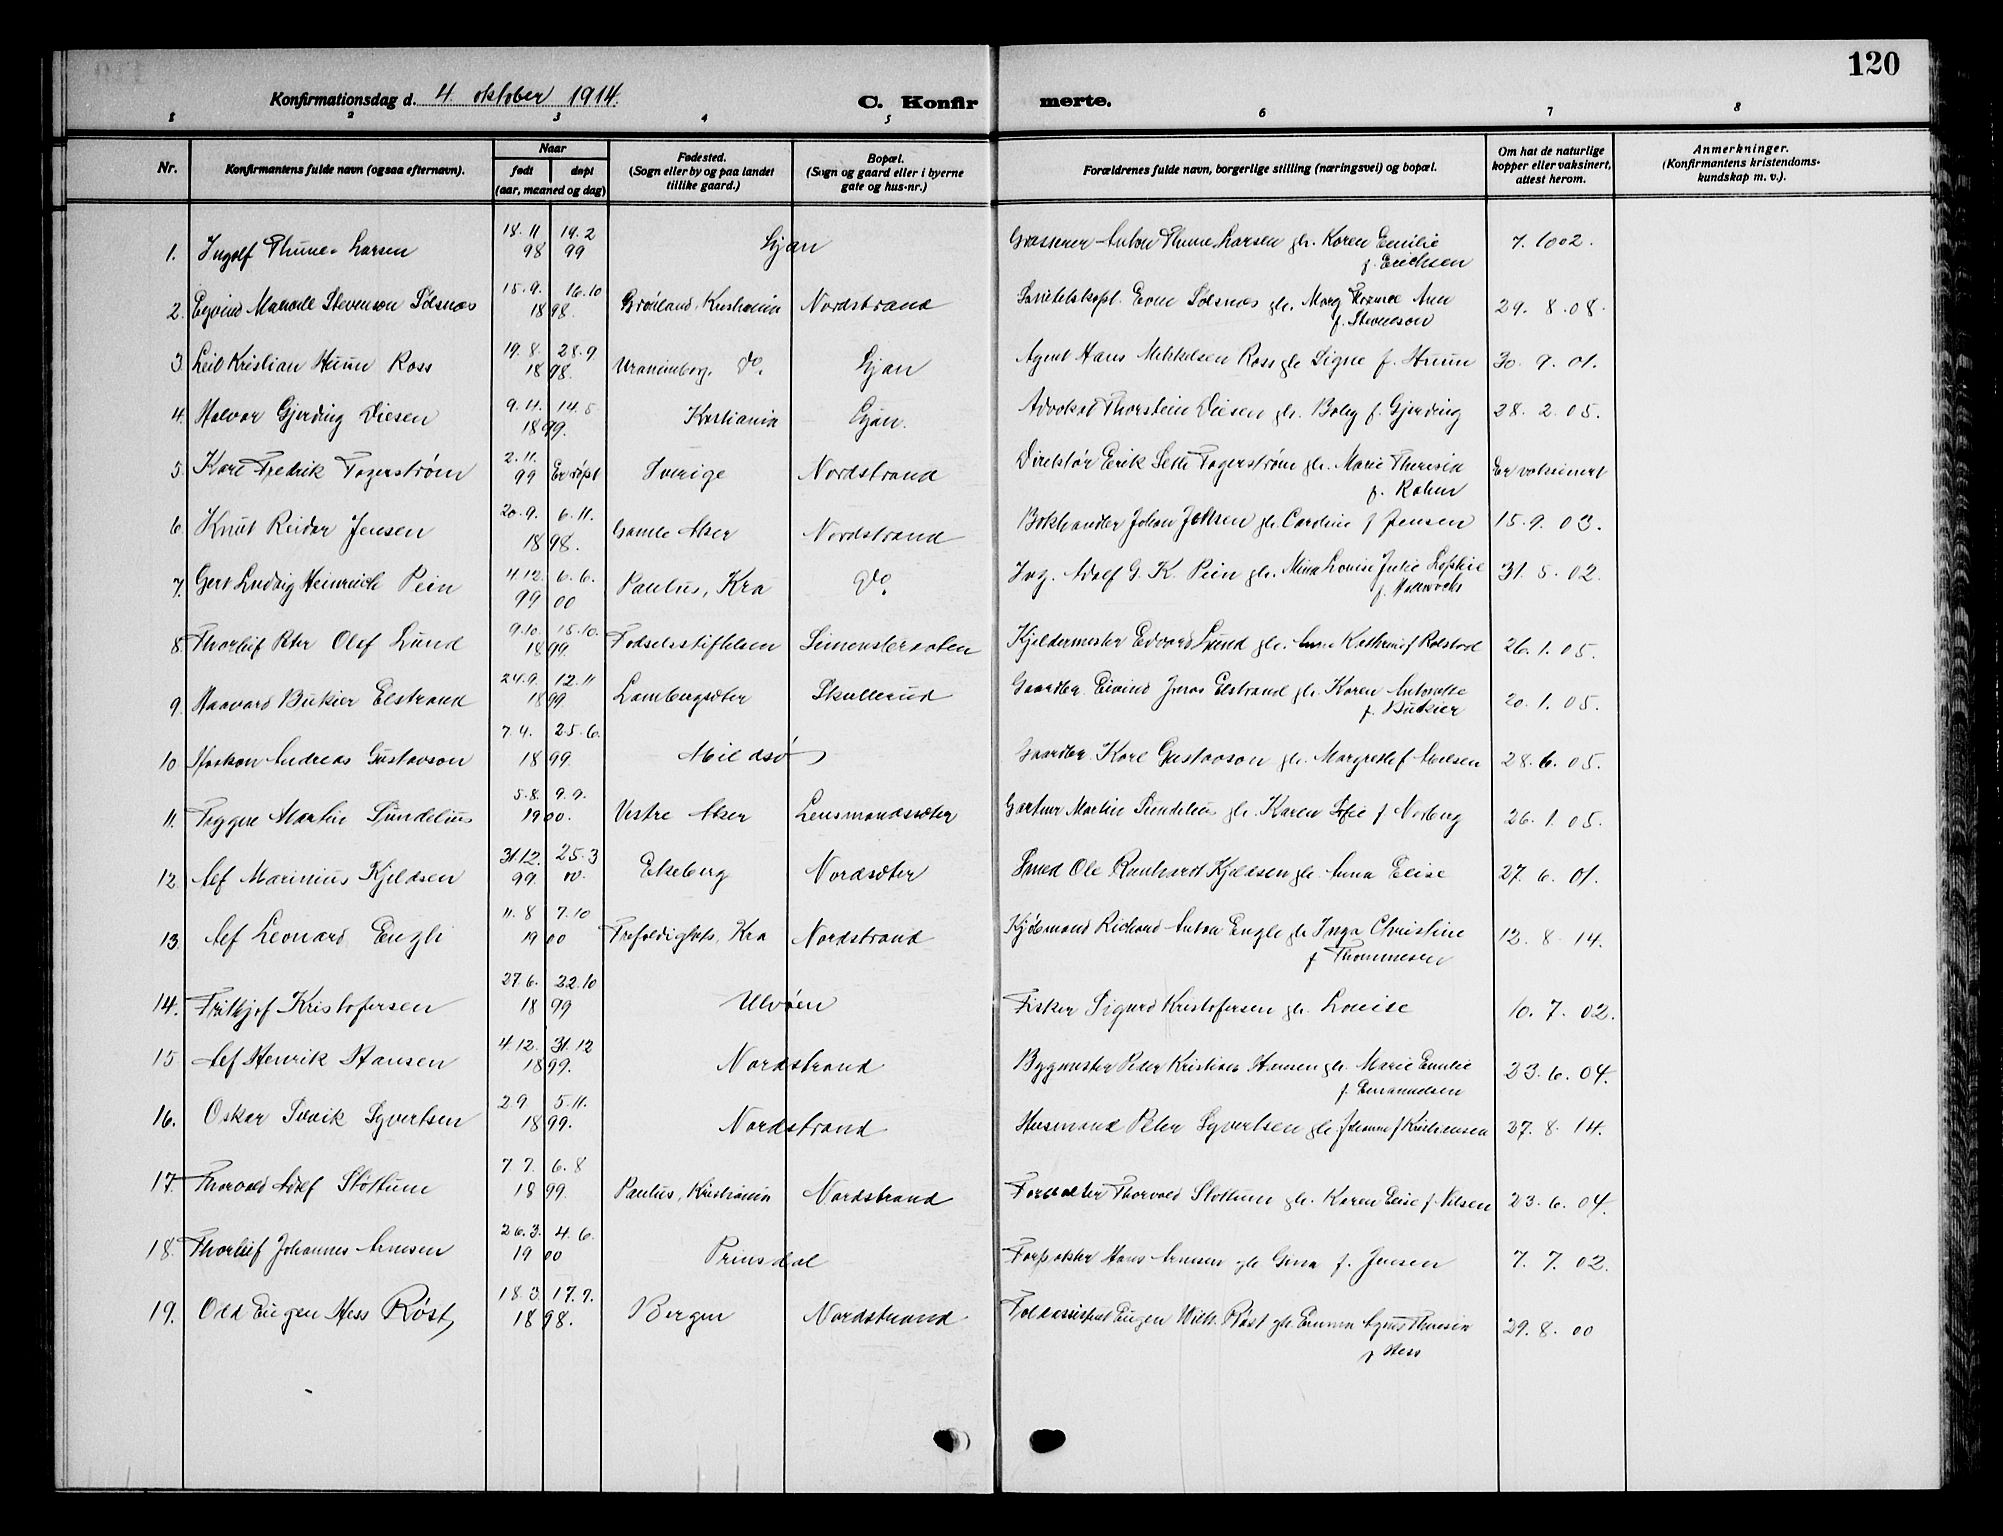 120
Konfirmationsdag d. 4. oktober 1914.
C. Konfirmerte.
1 2 3 4 5 6 7 8
Nr. Konfirmantens fulde navn (ogsaa efternavn). Naar født døpt (aar, maaned og dag) Fødested. (Sogn eller by og paa landet tillike gaard.) Bopæl. (Sogn og gaard eller i byerne gate og hus-nr.) Forældrenes fulde navn, borgerlige stilling (næringsvei) og bopæl. Om hat de naturlige kopper eller vaksinert, attest herom. Anmerkninger. (Konfirmantens kristendoms-kundskap m. v.).
1. Ingolf Thune-Larsen 18.11 98 19.2 99 Ljan Anton Thune Larsen gh. Karen Emilie f. Erichsen 7. 10 02.
2. Stevenson Sølsnæs 15.9. 16.10 1898. Grønland, Kristiania Nordstrand Sølsnæs gh. Ann f. Stevenson 29. 8. 08.
3. Leif Kristian Huun Ross 19.8. 28.9 1898. Uranienborg, do. Ljan Agent Hans Mikkelsen Ross gh. Signe f. Huun 30. 9. 01.
4. Halvor Gjerding Diesen 9.11. 14.5 1899. Kristiania Ljan. Advokat Thorstein Diesen gh. f. Gjerding 28. 2. 05.
5. Karl Fredrik Fagerstrøm 2.11. 99 Er døpt Sverige Nordstrand Direktør Erik Fagerstrøm gh. Marie Theresia f. Er vaksinert
6. Knut Reidar Jensen 20.9. 6.11. 1898. Gamle Aker Nordstrand Bokhandler Johan Jensen gh. Caroline f. Jensen 15. 9. 03.
7. Gert Ludvig Heinrich Pein 4.12. 99 6.6. 00 Paulus, Kra do. Ing. Adolf G. K. Pein gh. Mina Louise Julie f. 31. 5. 02.
8. Thorleif Peter Olaf Lund 9.10. 15.10. 1899. Fødselsstiftelsen Simenstraaten Kjeldermester Edvard Lund gh. Anna Kathrine f. Rolstad 26. 1. 05.
9. Haavard Butier Elstrand 24.9. 12.11 1899. Lambertsæter Skullerud Gaardbr. Eivind Elstrand gh. Karen Antonette f. Butier 20. 1. 05.
10. Haakon Andreas Gustavson 7.4. 25.6. 1899. Gaardbr. Karl Gustavson gh. Margrethe f. Nilsen 28. 6. 05.
11. Trygve Martin Sundelius 5.8. 9.9. 1900. Vestre Aker Lensmandssæter Gartner Martin Sundelius gh. Karen Sofie f. Norberg 26. 1. 05.
12. Alf Marinius Kjeldsen 31.12. 99. 25.3 00. Ekeberg Nordsæter Smed Ole Kjeldsen gh. Anna Elise 27. 6. 01.
13. Alf Leonard Engli 11.8 7.10 1900 Trefoldighets, Kra Nordstrand Kjøbmand Richard Anton Engli gh. Inga Christine f. Thommesen 12. 8. 14.
14. Frithjof Kristofersen 27.6. 22.10 1899 Ulvøen Fisker Sigurd Kristofersen gh. Louise 10. 7. 02.
15. Alf Henrik Hansen 4.12. 31.12 1899. Nordstrand Bygmester Peder Kristian Hansen gh. Marie Emilie f. Emanuelsen 23. 6. 04.
16. Oskar Syvertsen 2.9 5.11. 1899. Nordstrand Husmand Peter Syvertsen gh. Johanne f. Kristiansen 27. 8. 14.
17. Thorvald Adolf Slottum 7 7. 6.8 1899. Paulus, Kristiania Nordstrand Forvalter Thorvald Slottum gh. Karen Elise f. Nilsen 23. 6. 04.
18. Thorleif Johannes Arnesen 26.3. 4.6. 1900 Prinsdal Forpakter Hans Arnesen gh. Gina f. Jensen 7. 7. 02.
19. Odd Eugen Hess Røst 18.3. 17.7. 1898. Bergen Nordstrand Toldassistent Eugen Wilh. Røst gh. Emma Agnes Theresia f. Hess 29. 8. 00